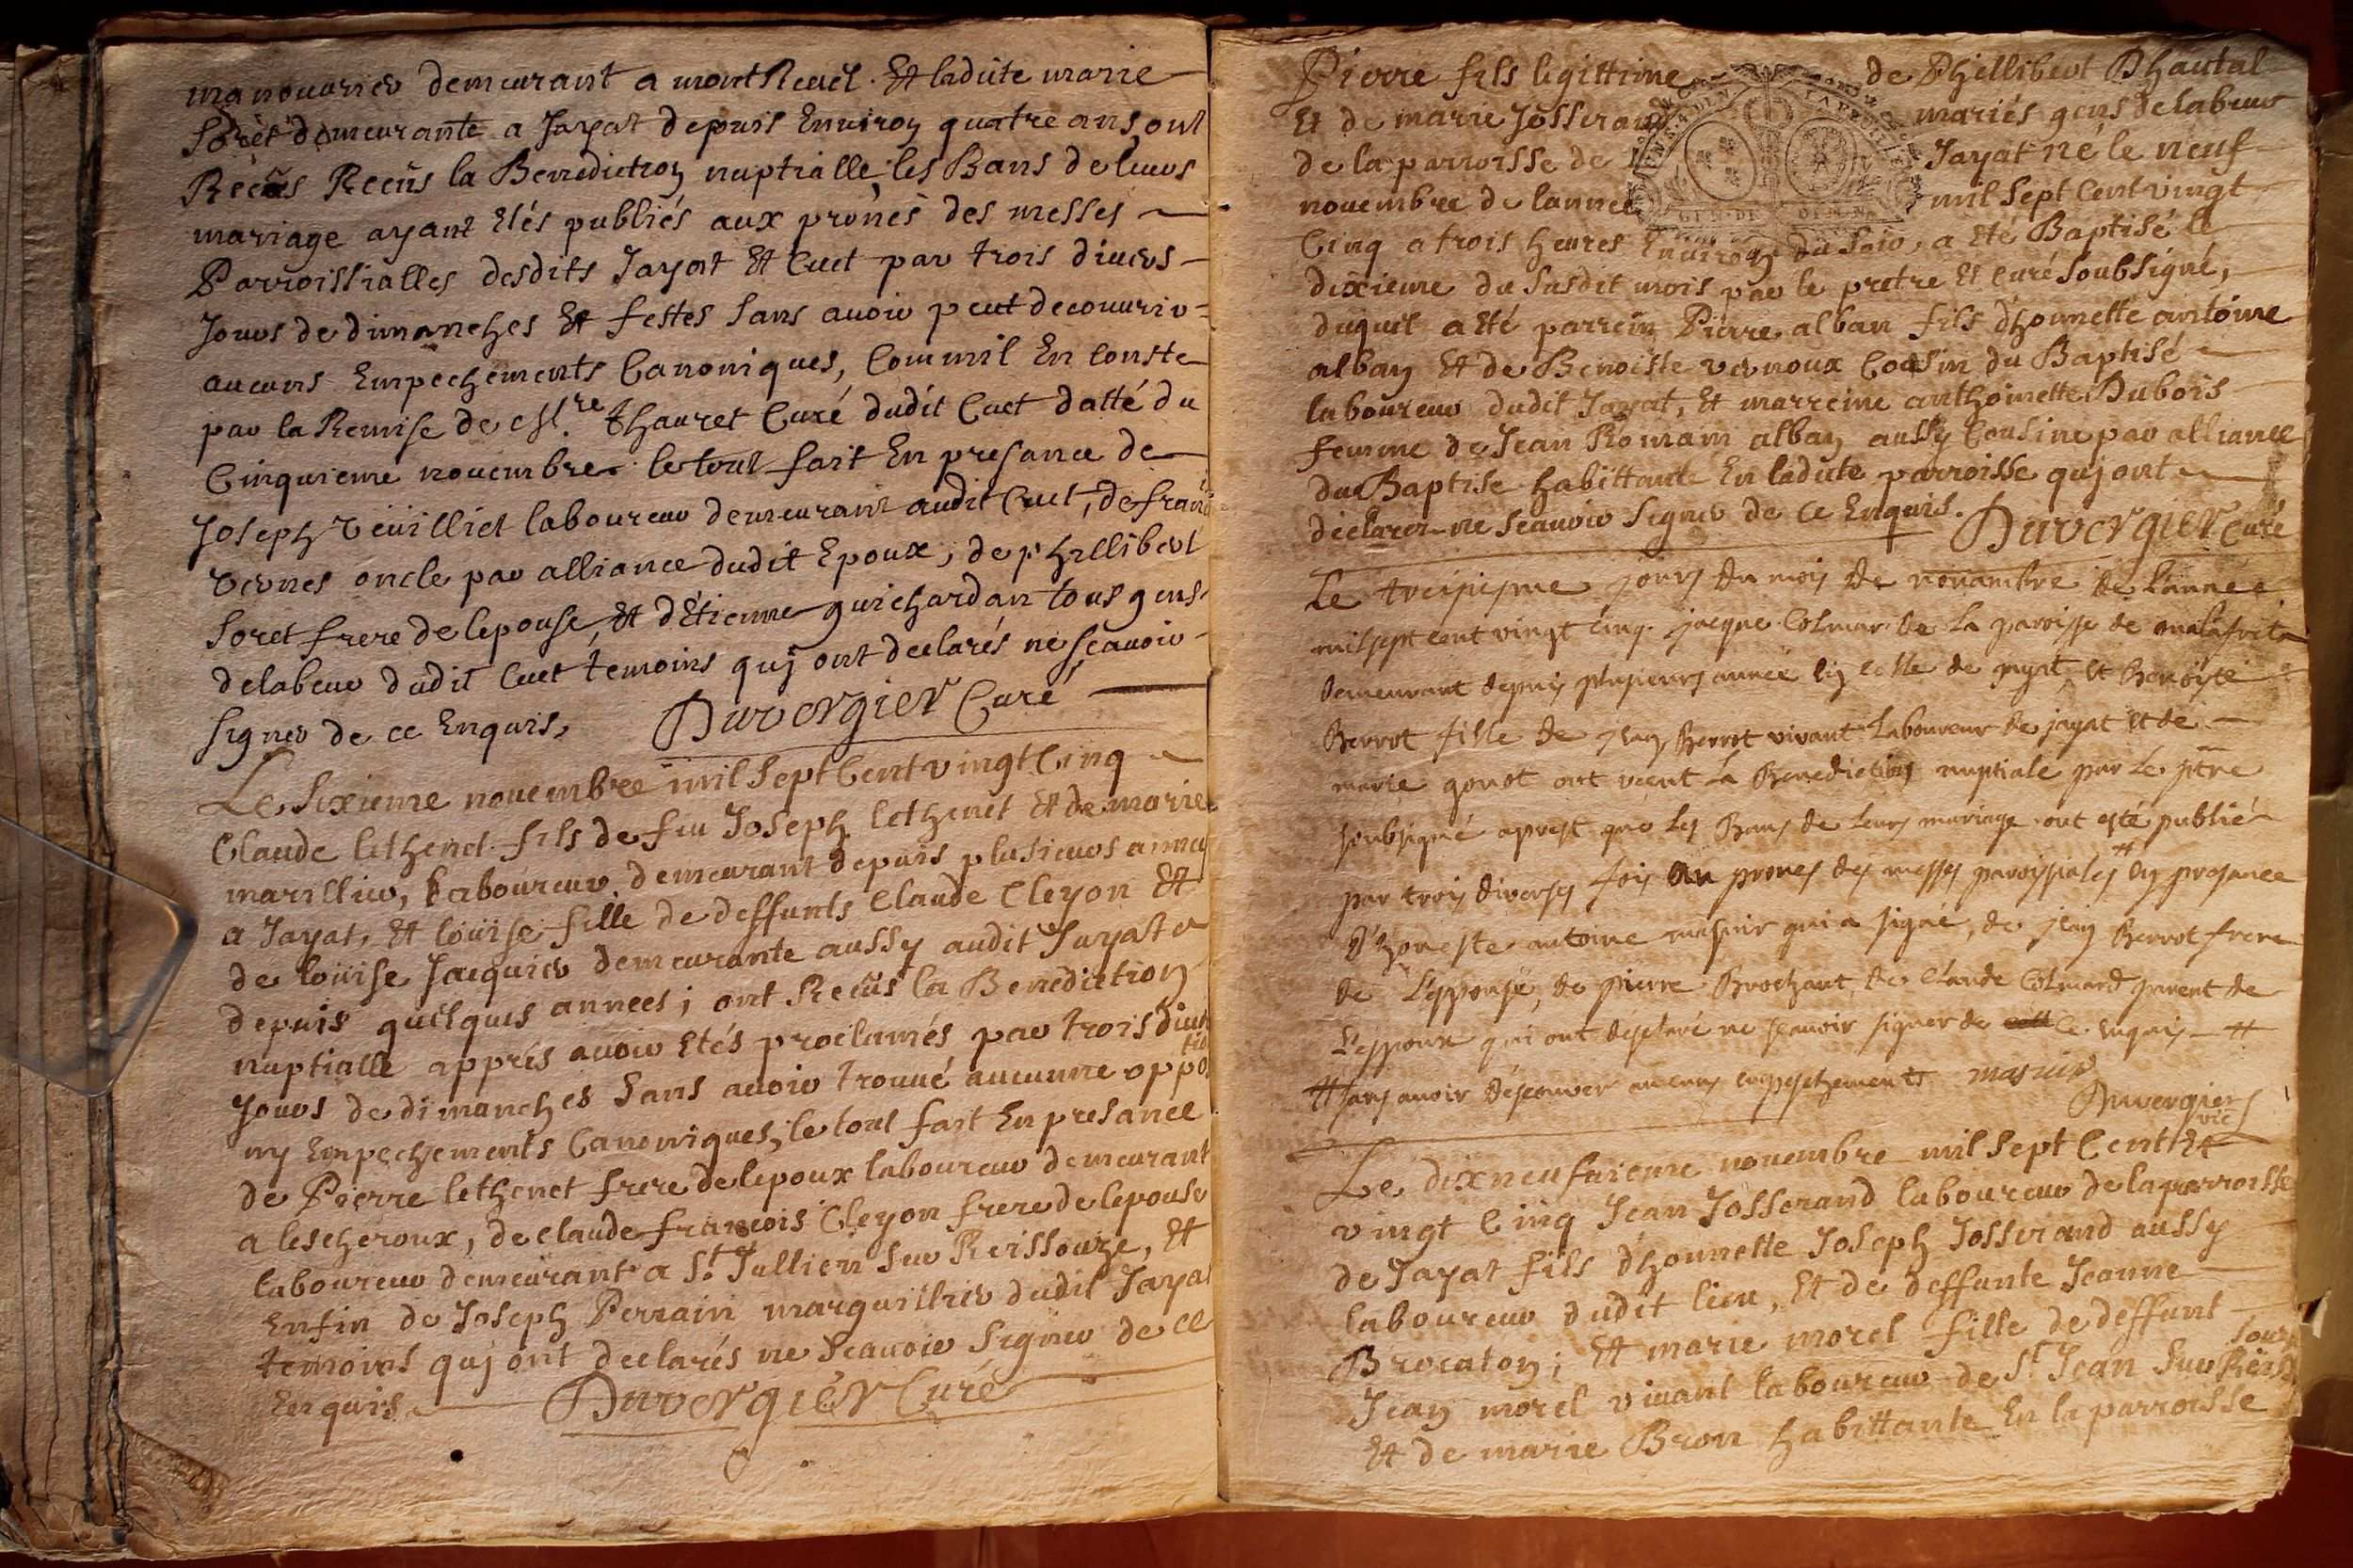 manouurier demeurant a montReuel. Et ladite marie
soret demeurante a Jayat depuis Enuiron quatre ans, ont
Reçûs la Benediction nuptialle, les Bans de leurs
mariage ayant Etés publiés aux prônes des messes
Parroissialles desdits Jayat Et Cuet par trois diuers
Jours de dimanches Et festes sans auoir peut decouurir
aucuns Empechements Canoniques, Comm'il En Conste
par la Remise de Thauret Curé dudit Cuet datté du
Cinquieme nouembre. le tout fait En presance de
Joseph Veüilliet laboureur demeurant audit Cuet, de
vernes oncle par alliance dudit Epoux, de phillibert
soret frere de lepouse, Et d'Etienne guichardan tous gens
delabeur dudit Cuet temoins quj ont declarés ne sçauoir
signer de ce Enquis. Duvergier Curé
Le sixieme nouembre mil sept Cent vingt Cinq
Claude lethenet fils de feu Joseph lethenet Et de marie
marillier, laboureur demeurant depuis plusieurs année
a Jayat, Et loüise fille de deffunts Claude Cleyon Et
de loüise Jacquier demeurante aussy audit Jayat
depuis quelques années ; ont Reçûs la Benediction
nuptialle apprés auoir Etés proclamés par trois diuers
Jours de dimanches sans auoir trouué aucunne oppotion
ny Empechements Canoniques, le tout fait En presance
de Pierre lethenet frere de lepoux laboureur demeurant
a lescheroux, de claude françois Cleyon frere de lepouse
laboureur demeurant a St. Jullien sur Reissouze, Et
Enfin de Joseph Perrain marguillier dudit Jayat
temoins quj ont declarés ne scauoir signer de ce
Enquis Duvergier Curé
Pierre fils legittime de Phillibert Phautal
Et de marie Josserand mariés gens delabeur
de la parroisse de Jayat né le neuf
nouembre de lannee mil sept Cent vingt
Cinq a trois heures Enuiron du soir, a Eté Baptisé le
dixieme du susdit mois par le pretre Et Curé soubsigné,
duquel a Eté parrein Pierre alban fils d'honnette antoine
alban Et de Benoiste vernoux Cousin du Baptisé
laboureur dudit Jayat, Et marreine anthoinette Dubois
femme de Jean Romain alban aussy Cousine par alliance
du Baptise habittante En ladite parroisse quj ont
declarer ne scauoir signer de Ce Enquis. Duvergier Curé
Le treisiesme jours du mois de nouambre de l'année
mil sept cent vingt cinq. jacque Colmar de la paroisse de malafreta
demeurant depuis plusieurs année celle de jayat, et Benoiste
Berrot fille de jean Berrot vivant Laboureur de jayat et de
marie gonot ont recut La Benediction nuptiale par Le ptre
soubsigné aprest que Les Bans de Leurs mariage ont esté publié
par trois diverses fois au prones des messes paroissiales # en presance
d'honeste antoine masuir qui a signé, de jean Berrot frere
de L'epouse, de pierre Brochant, de Claude Colmard parent de
L'espoux qui ont desclaré ne scauoir signer de ce enquis #
# sans auoir descouver aucuns empeschements masuir
Duvergier
vic
Le dixneufuieme nouembre mil sept Cent Et
vingt Cinq Jean Josserand laboureur de la parroisse
de Jayat fils d'honnette Joseph Josserand aussy
laboureur dudit lieu, Et de deffunte Jeanne
Brocaton ; Et marie morel fille de deffunt
Jean morel viuant laboureur de St. Jean sur Reissouze
Et de marie Bron habittante En la parroisse